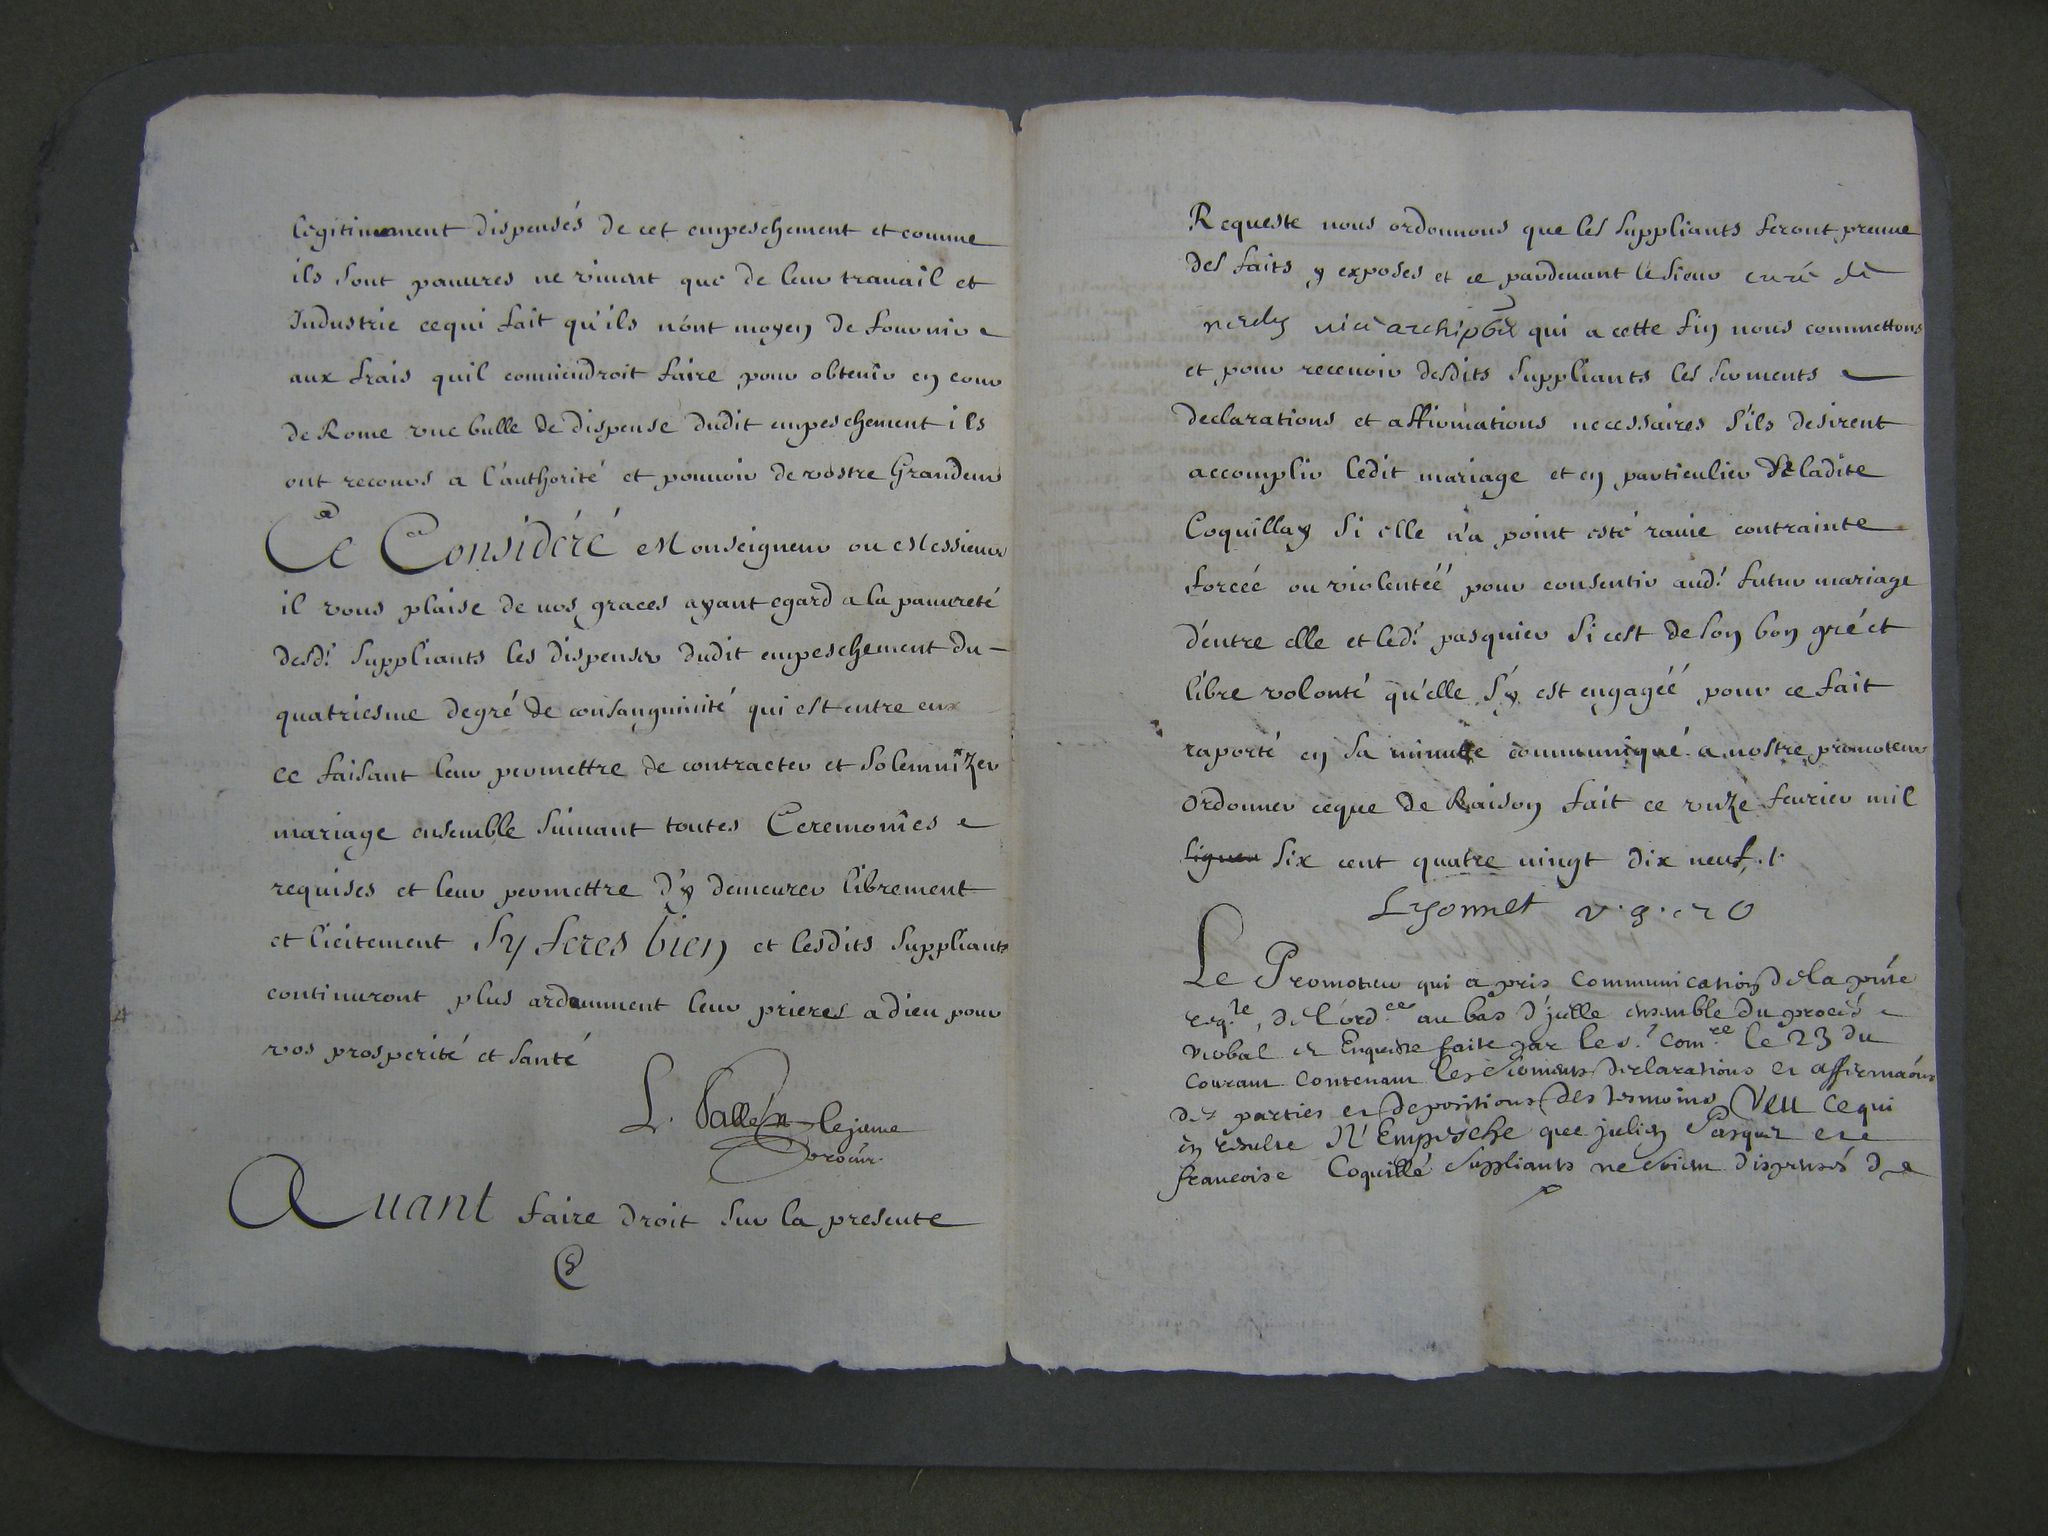 legitimement dispensés de cet empeschement et comme
ils sont pauures ne viuant que de leur trauail et
Industrie cequi fait qu'ils nónt moyen de fournir
aux frais quil conuiendroit faire pour obtenir en cour
de Rome vne bulle de dispense dudit empeschement ils
ont recours a l'authorité et pouuoir de vostre Grandeur
Ce Considéré Monseigneur ou Messieurs
il vous plaise de vos graces ayant egard a la pauureté
desd. Suppliants les dispenser dudit empeschement du
quatriesme degré de consanguinité qui est entre eux
ce faisant leur permettre de contracter et solemnizer
mariage ensemble suiuant toutes Ceremonies
requises et leur permettre d'y demeurer librement
et licitement Sy feres bien et lesdits suppliants
continuront plus ardamment leur prieres a dieu pour
vos prosperité et santé
L. Vallee le jeune
procur.
Auant faire droit sur la presente
Requeste nous ordonnons que les suppliants feront preuue
des faits y exposes et ce pardeuant le Sieur curé de
vice qui a cette fin nous commettons
et pour receuoir desdits suppliants les serments
declarations et affirmations necessaires s'ils desirent
accomplir ledit mariage et en particulier de ladite
Coquillay si elle n'a point esté rauie contrainte
forcéé ou violentéé pour consentir aud. futur mariage
d'entre elle et led. pasquier si cest de son bon gré et
libre volonté qu'elle s'y est engagéé pour ce fait
raporté en sa minutte communiqué a nostre promoteur
ordonner ceque de Raison fait ce vnze feurier mil
six cent quatre vingt dix neuf .
Lyonnet v. g.
Le Promoteur qui a pris communication de la pnte
reqte, de l'ordce au bas d'jcelle ensemble du procés
verbal et Enqueste faite par le sr comre le 23 du
courant contenant les serments declarations et affirmaons
des parties et depositions des tesmoins, Veu ce qui
en resulte N'Empesche que julien Pasquier et
francoise Coquillé suppliants ne soient dispensés de